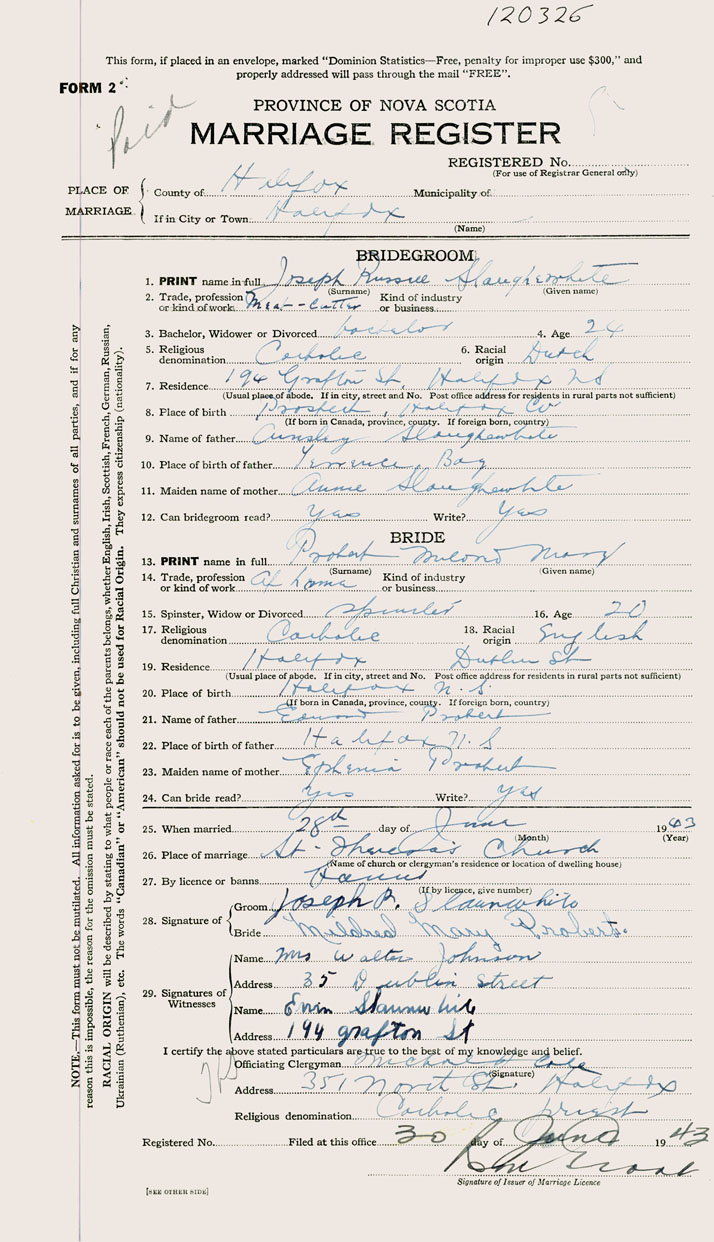 120326
This form, if placed in an envelope, marked "Dominion Statistics—Free, penalty for improper use $300," and
properly addressed will pass through the mail "FREE".
FORM 2
Paid
PROVINCE OF NOVA SCOTIA
MARRIAGE REGISTER
REGISTERED No.
(For use of Registrar General only)
PLACE OF MARRIAGE
County of Halifax Municipality of
If in City or Town Halifax
(Name)
BRIDEGROOM
1. PRINT name in full Joseph Russel Slaughewhite
(Surname) (Given name)
2. Trade, profession or kind of work Meat-Cutter Kind of industry or business
3. Bachelor, Widower or Divorced bachelor 4. Age 24
5. Religious denomination Catholic 6. Racial origin Dutch
7. Residence 194 Grafton St, Halifax NS
(Usual place of abode. If in city, street and No. Post office address for residents in rural parts not sufficient)
8. Place of birth Prospect, Halifax Co
(If born in Canada, province, county. If foreign born, country)
9. Name of father Slaughewhite
10. Place of birth of father Terrence Bay
11. Maiden name of mother Annie Slaughewhite
12. Can bridegroom read? Yes Write? Yes
BRIDE
13. PRINT name in full Probert Mary
(Surname) (Given name)
14. Trade, profession or kind of work At home Kind of industry or business
15. Spinster, Widow or Divorced spinster 16. Age 20
17. Religious denomination Catholic 18. Racial origin English
19. Residence Halifax Dublin St
(Usual place of abode. If in city, street and No. Post office address for residents in rural parts not sufficient)
20. Place of birth Halifax N.S.
(If born in Canada, province, county. If foreign born, country)
21. Name of father Edward Probert
22. Place of birth of father Halifax N.S
23. Maiden name of mother Ephenia Probert
24. Can bride read? Yes Write? Yes
25. When married 28th day of June 1943
(Month) (Year)
26. Place of marriage St-Theresa's Church
(Name of church or clergyman's residence or location of dwelling house)
27. By licence or banns Banns
(If by licence, give number)
28. Signature of
Groom Joseph R. Slaunwhite
Bride Mildred Mary Probert.
29. Signatures of Witnesses
Name Mrs Walter Johnson
Address 35 Dublin Street
Name Slaunwhite
Address 194 grafton St
I certify the above stated particulars are true to the best of my knowledge and belief.
Officiating Clergyman
(Signature)
Address 351 North St. Halifax
Religious denomination Catholic Priest
Registered No. Filed at this office 30 day of June 1943
Signature of Issuer of Marriage Licence
[SEE OTHER SIDE]
NOTE.—This form must not be mutilated. All information asked for is to be given, including full Christian and surnames of all parties, and if for any
reason this is impossible, the reason for the omission must be stated.
RACIAL ORIGIN will be described by stating to what people or race each of the parents belongs, whether English, Irish, Scottish, French, German, Russian,
Ukrainian (Ruthenian), etc. The words "Canadian" or "American" should not be used for Racial Origin. They express citizenship (nationality).